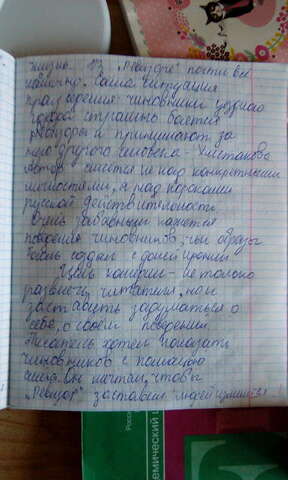 жизнь. В „Ревизоре" почти все
комично. Сама ситуация
чиновники уездного
города страшно боятся
ревизора и принимают за
него другого человека – Хлестакова
Автор смеется не над конкретными
личностями, а над пороками
русской действительности.
Очень забавным кажется
поведение чиновников, чьи образы
Гоголь создал с долей иронии.
Цель комедии – не только
развлечь читателя, но и
заставить задуматься о
себе, о своем поведении.
Писатель хотел показать
чиновников с помощью
смеха. Он мечтал, чтобы
„Ревизор" заставил людей измениться!
Росси
емический ш